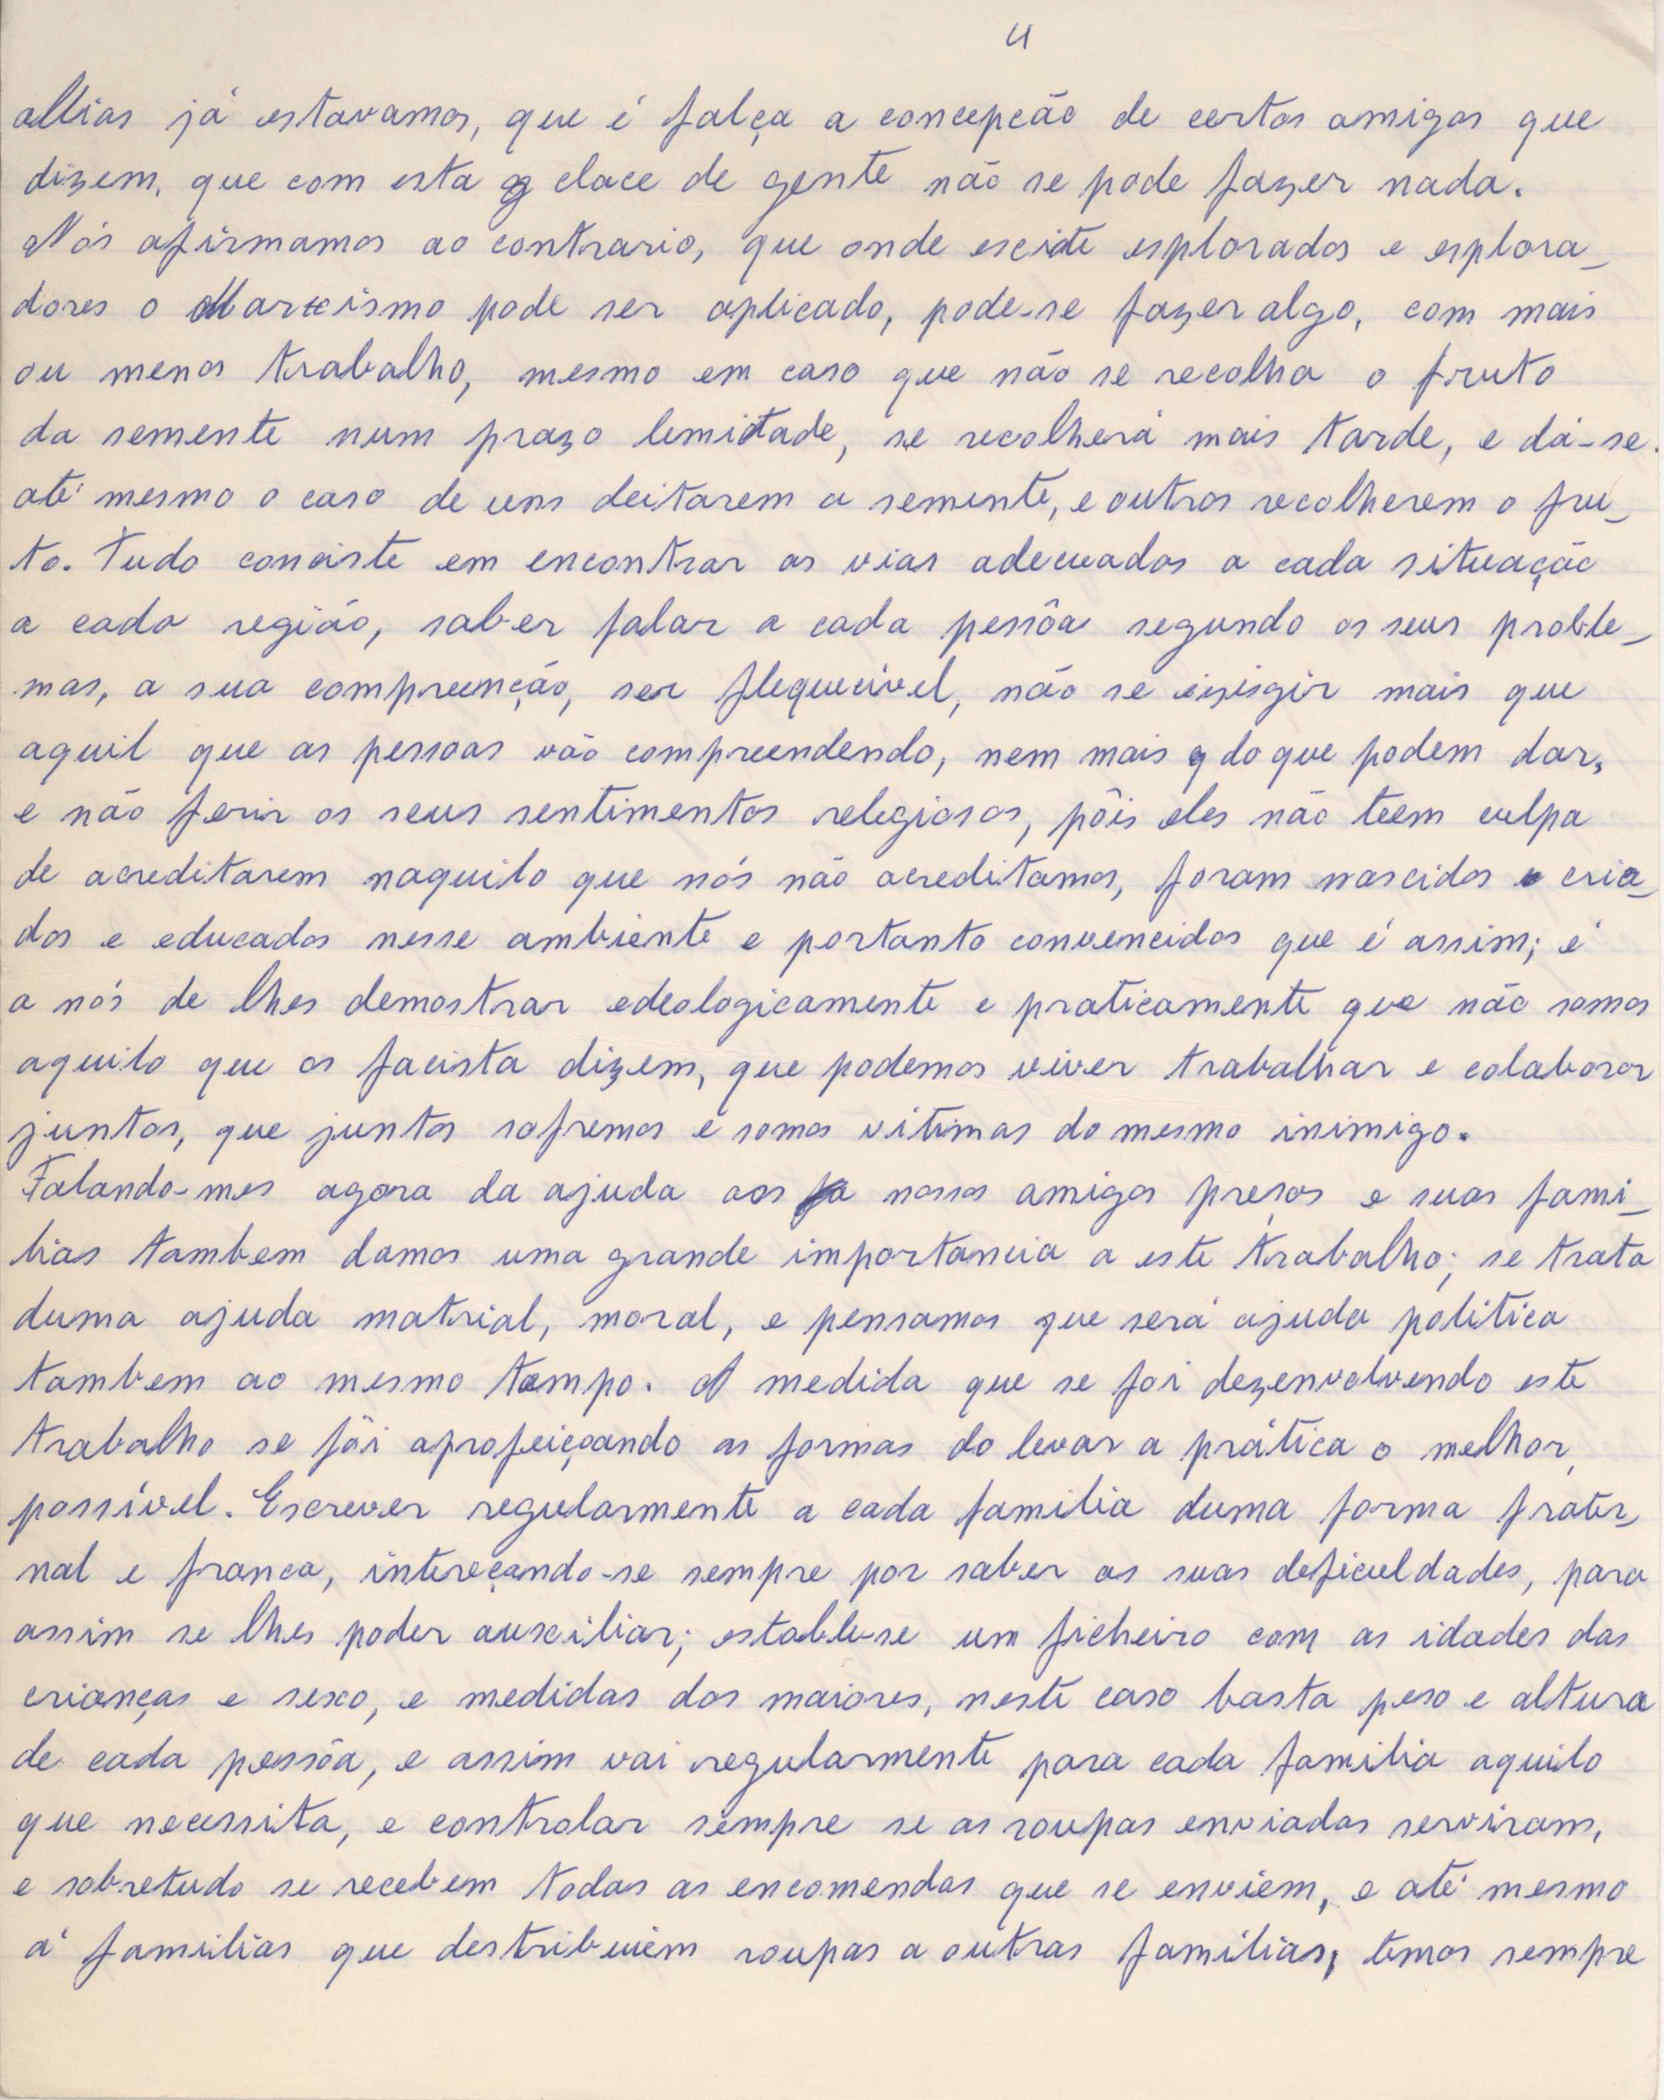 4
allias já estavamos, que é falça a concepcão de certos amigos que
dizem, que com esta clace de gente não se pode fazer nada.
Nós afirmamos ao contrario, que onde escite esplorados e esplora-
dores o Marxismo pode ser aplicado, pode-se fazer algo, com mais
ou menos trabalho, mesmo em caso que não se recolha o fruto
da semente num prazo lemitade, se recolherá mais tarde, e dá-se
até mesmo o caso de uns deitarem a semente, e outros recolherem o fru-
to. Tudo conciste em encontrar as vias adecuadas a cada situação
a cada região, saber falar a cada pessôa segundo os seus proble-
mas, a sua compreenção, ser flequecivel, não se exisgir mais que
aquil que as pessoas vão compreendendo, nem mais do que podem dar,
e não ferir os seus sentimentos relegiosos, pôis eles não teem culpa
de acreditarem naquilo que nós não acreditamos, foram nascidos e cria-
dos e educados nesse ambiente e portanto convencidos que é assim; é
a nós de lhes demostrar edeologicamente e praticamente que não somos
aquilo que os facista dizem, que podemos viver trabalhar e colaborar
juntos, que juntos sofremos e somos vitimas do mesmo inimigo.
Falando-mes agora da ajuda aos nossos amigos presos e suas fami-
lias tambem damos uma grande importancia a este trabalho; se trata
duma ajuda matrial, moral, e pensamos que será ajuda politica
tambem ao mesmo tempo. A medida que se foi dezenvolvendo este
trabalho se fôi aprofeiçoando as formas do levar a prática o melhor
possível. Escrever regularmente a cada familia duma forma frater-
nal e franca, intereçando-se sempre por saber as suas deficuldades, para
assim se lhes poder auxiliar; estable-se um ficheiro com as idades das
crianças e sexo, e medidas dos maiores, neste caso basta peso e altura
de cada pessôa, e assim vai regularmente para cada familia aquilo
que necessita, e controlar sempre se as roupas enviadas serviram,
e sobretudo se recebem todas as encomendas que se enviem, e até mesmo
á familias que destribuiem roupas a outras familias, temos sempre